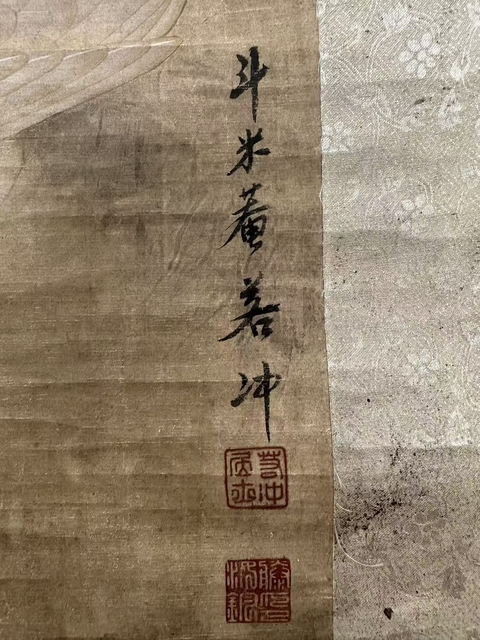 斗米菴若冲
若冲居士